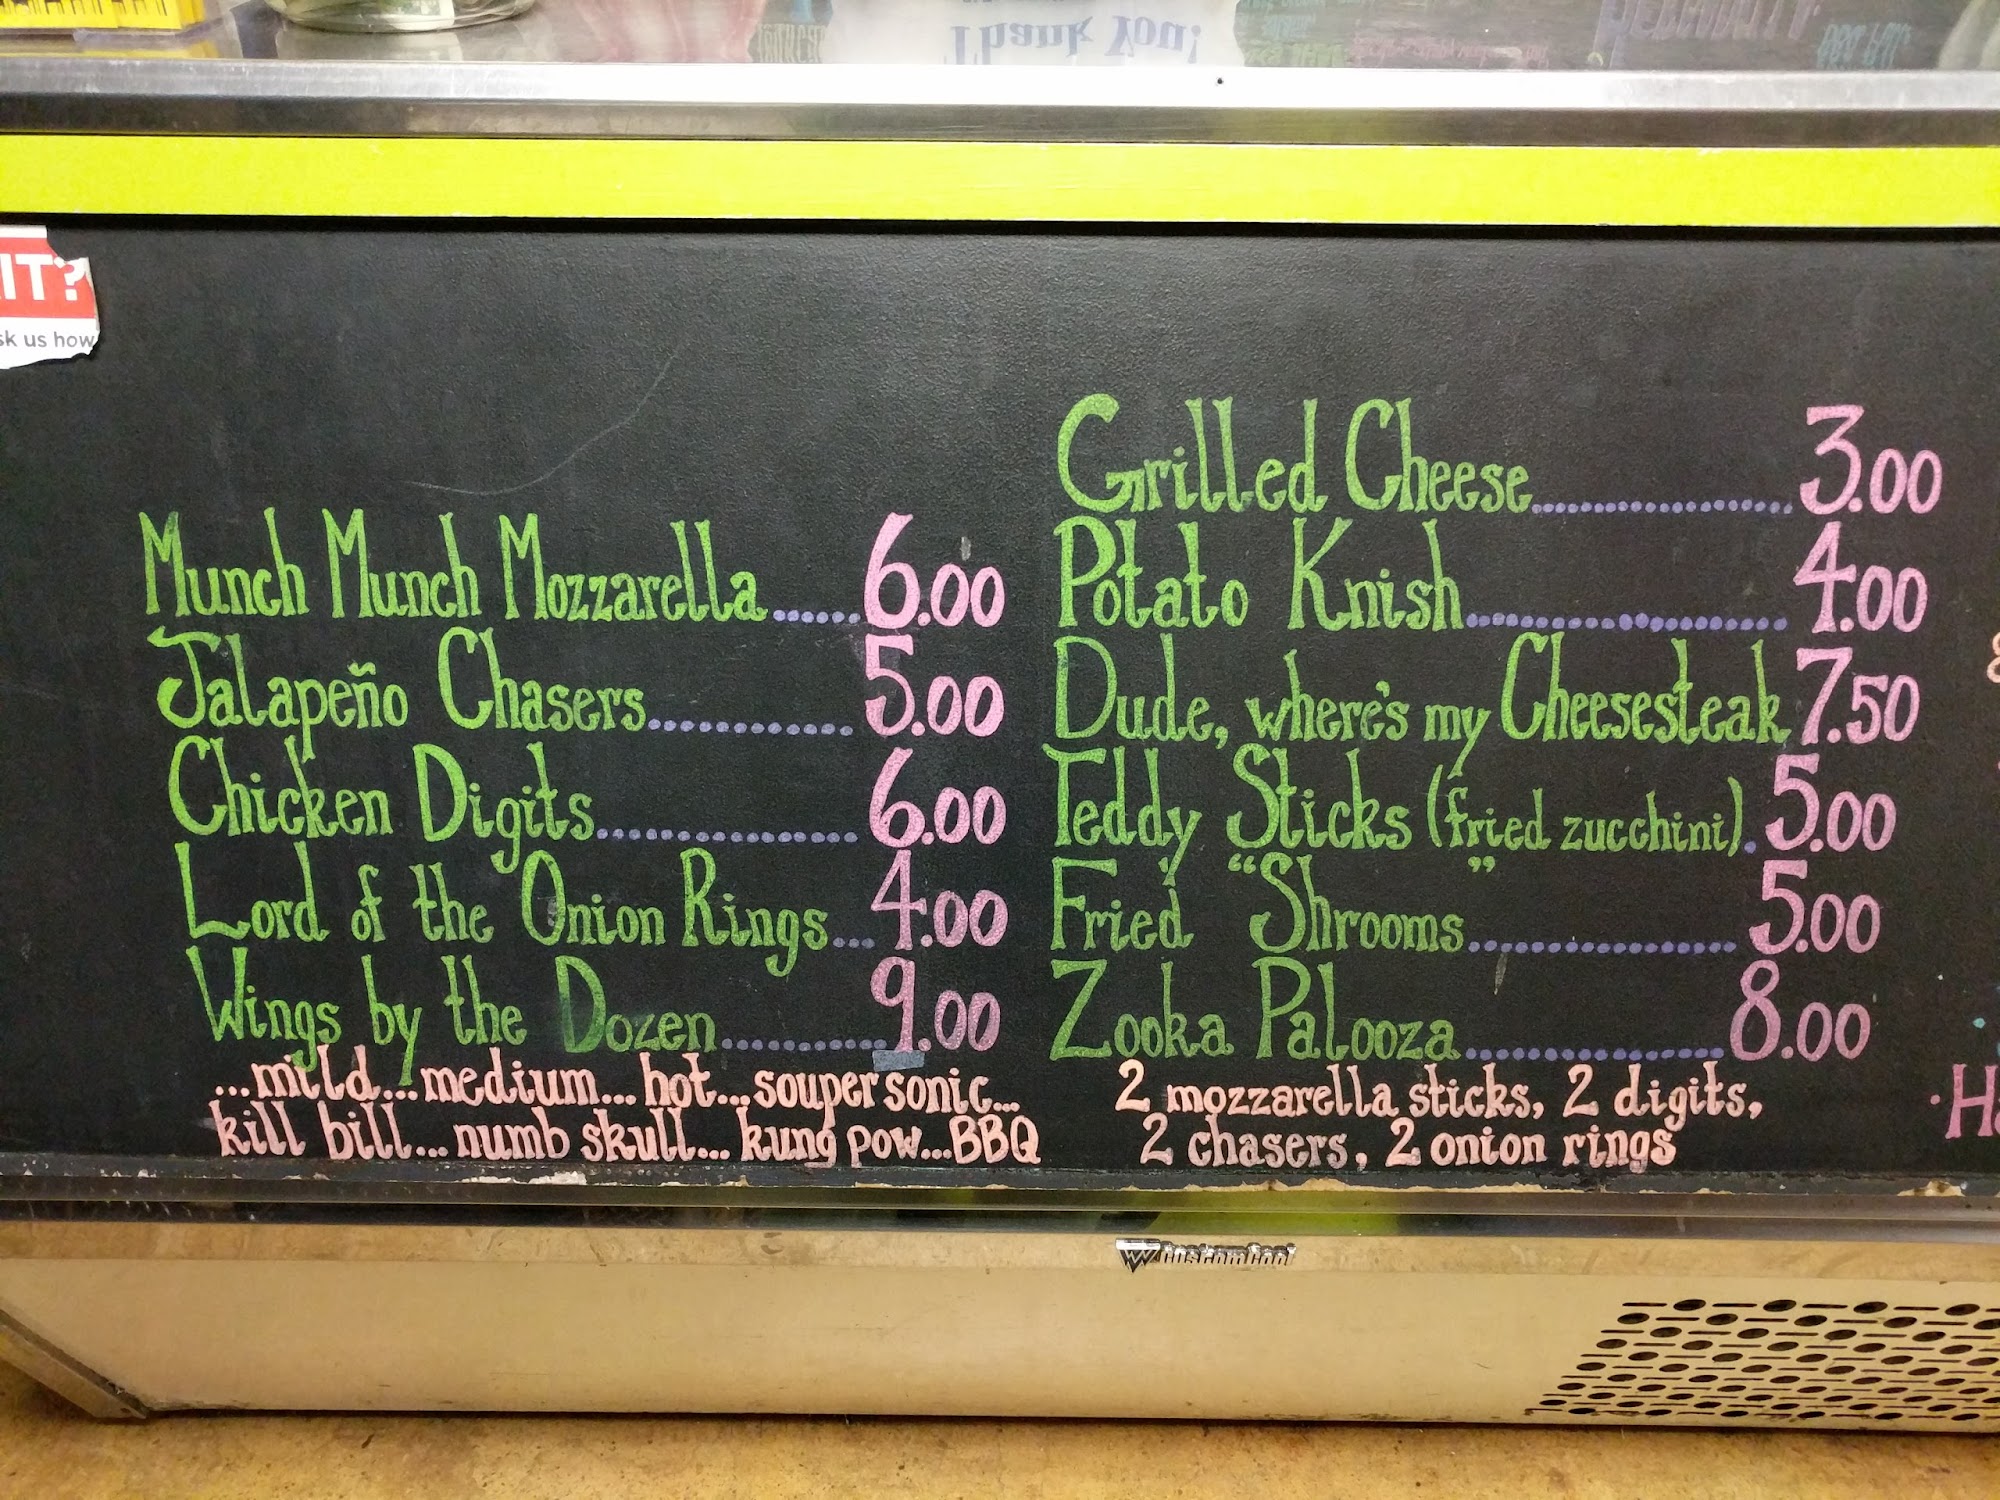 Thank You!
IT?
sk us how
Munch Munch Mozzarella.....6.00
Jalapeño Chasers...........5.00
Chicken Digits.............6.00
Lord of the Onion Rings...4.00
Wings by the Dozen..........9.00
...mild...medium...hot...souper sonic...
kill bill...numb skull...kung pow...BBQ
Grilled Cheese.................3.00
Potato Knish...................4.00
Dude, where's my Cheesesteak 7.50
Teddy Sticks (fried zucchini).5.00
Fried "Shrooms"................5.00
Zooka Palooza................8.00
2 mozzarella sticks, 2 digits,
2 chasers, 2 onion rings
CustomCool